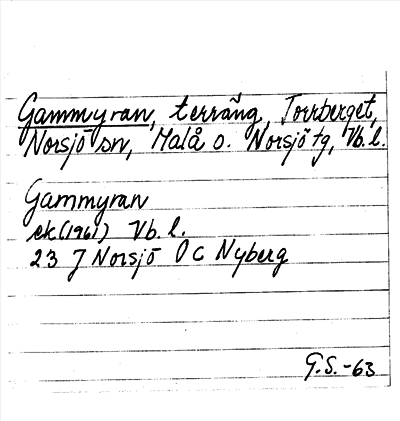 Gammyran, terräng, Torrberget,
Norsjö sn, Malå o. Norsjö tg, Vb. l.
Gammyran
ek (1961) Vb. l.
23 J Norsjö OC Nyberg
G.S.-63